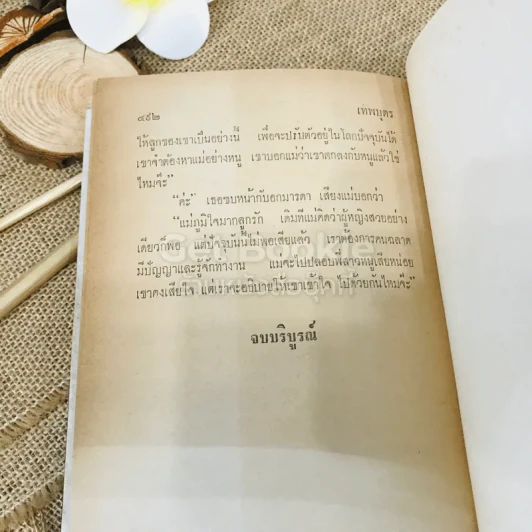 ๔๙๒
เทพบุตร
ให้ลูกของเขาเป็นอย่างนี้ เพื่อจะปรับตัวอยู่ในโลกปัจจุบันได้
เขาจำต้องหาแม่อย่างหนู เขาบอกแม่ว่าเขาตกลงกับหนูแล้วใช่
ไหมจ๊ะ"
"ค่ะ" เธอซบหน้ากับอกมารดา เสียงแม่บอกว่า
"แม่ภูมิใจมากลูกรัก เดิมทีแม่คิดว่าผู้หญิงสวยอย่าง
เดียวก็พอ แต่ปัจจุบันนี้ไม่พอเสียแล้ว เราต้องการคนฉลาด
มีปัญญาและรู้จักทำงาน แม่จะไปปลอบพี่สาวหนูเสียหน่อย
เขาคงเสียใจ แต่เราจะอธิบายให้เขาเข้าใจ ไปด้วยกันไหมจ๊ะ"
จบบริบูรณ์